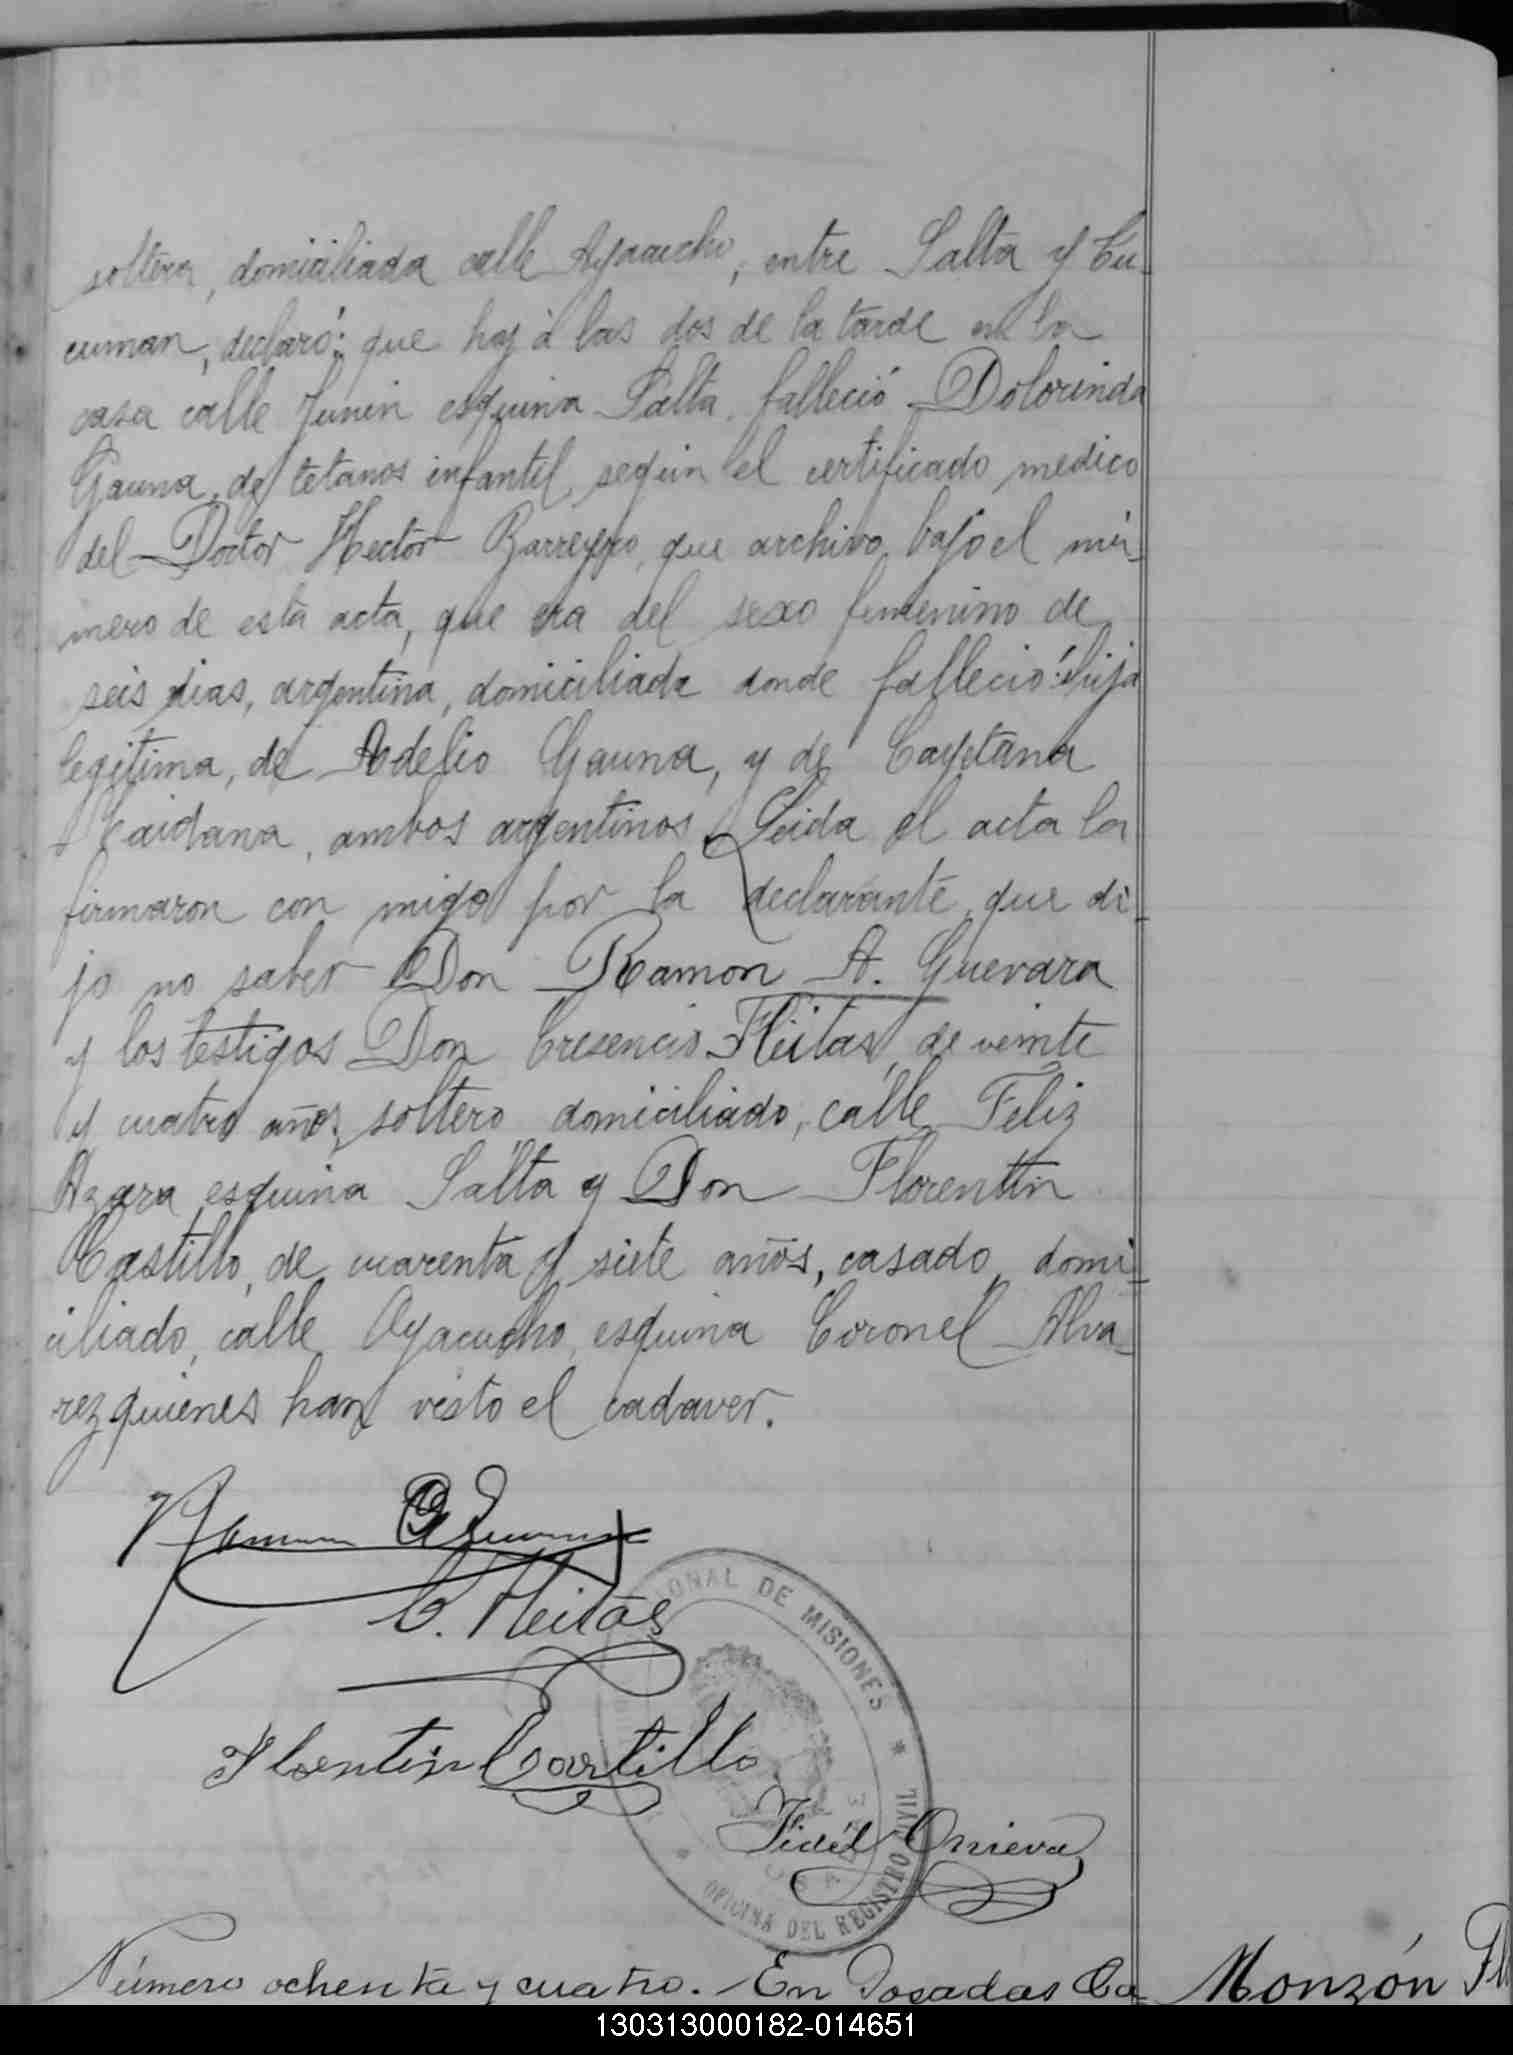 soltera, domiciliada calle Ayacucho, entre Salta y Tu-
cuman, declaró: que hoy à las dos de la tarde en la
casa calle Junin esquina Salta, falleció Dolorinda
Gauna, de tetanos infantil, segun el certificado medico
del Doctor Hector Barreyro, que archivo bajo el nú-
mero de esta acta, que era del sexo femenino de
seis dias, argentina, domiciliada donde falleció: hija
legitima, de Adelio Gauna, y de Cayetana
ambos argentinos. Leida el acta la
firmaron con migo por la declarante, que di-
jo no saber Don Ramon A. Guevara
y los testigos Don Cresencio Fleitas, de veinte
y cuatro años, soltero, domiciliado, calle Feliz
Azara esquina Salta y Don Florentin
Castillo, de cuarenta y siete años, casado, domi-
ciliado, calle Ayacucho, esquina Coronel Alva-
rez quienes han visto el cadaver.
Ramon
C. Fleitas
IONAL DE MISIONES *
Florentin Castillo
Fidel
* OFICINA DEL REGISTRO CIVIL
Número ochenta y cuatro. - En Posadas Ca- Monzón Fl
130313000182-014651